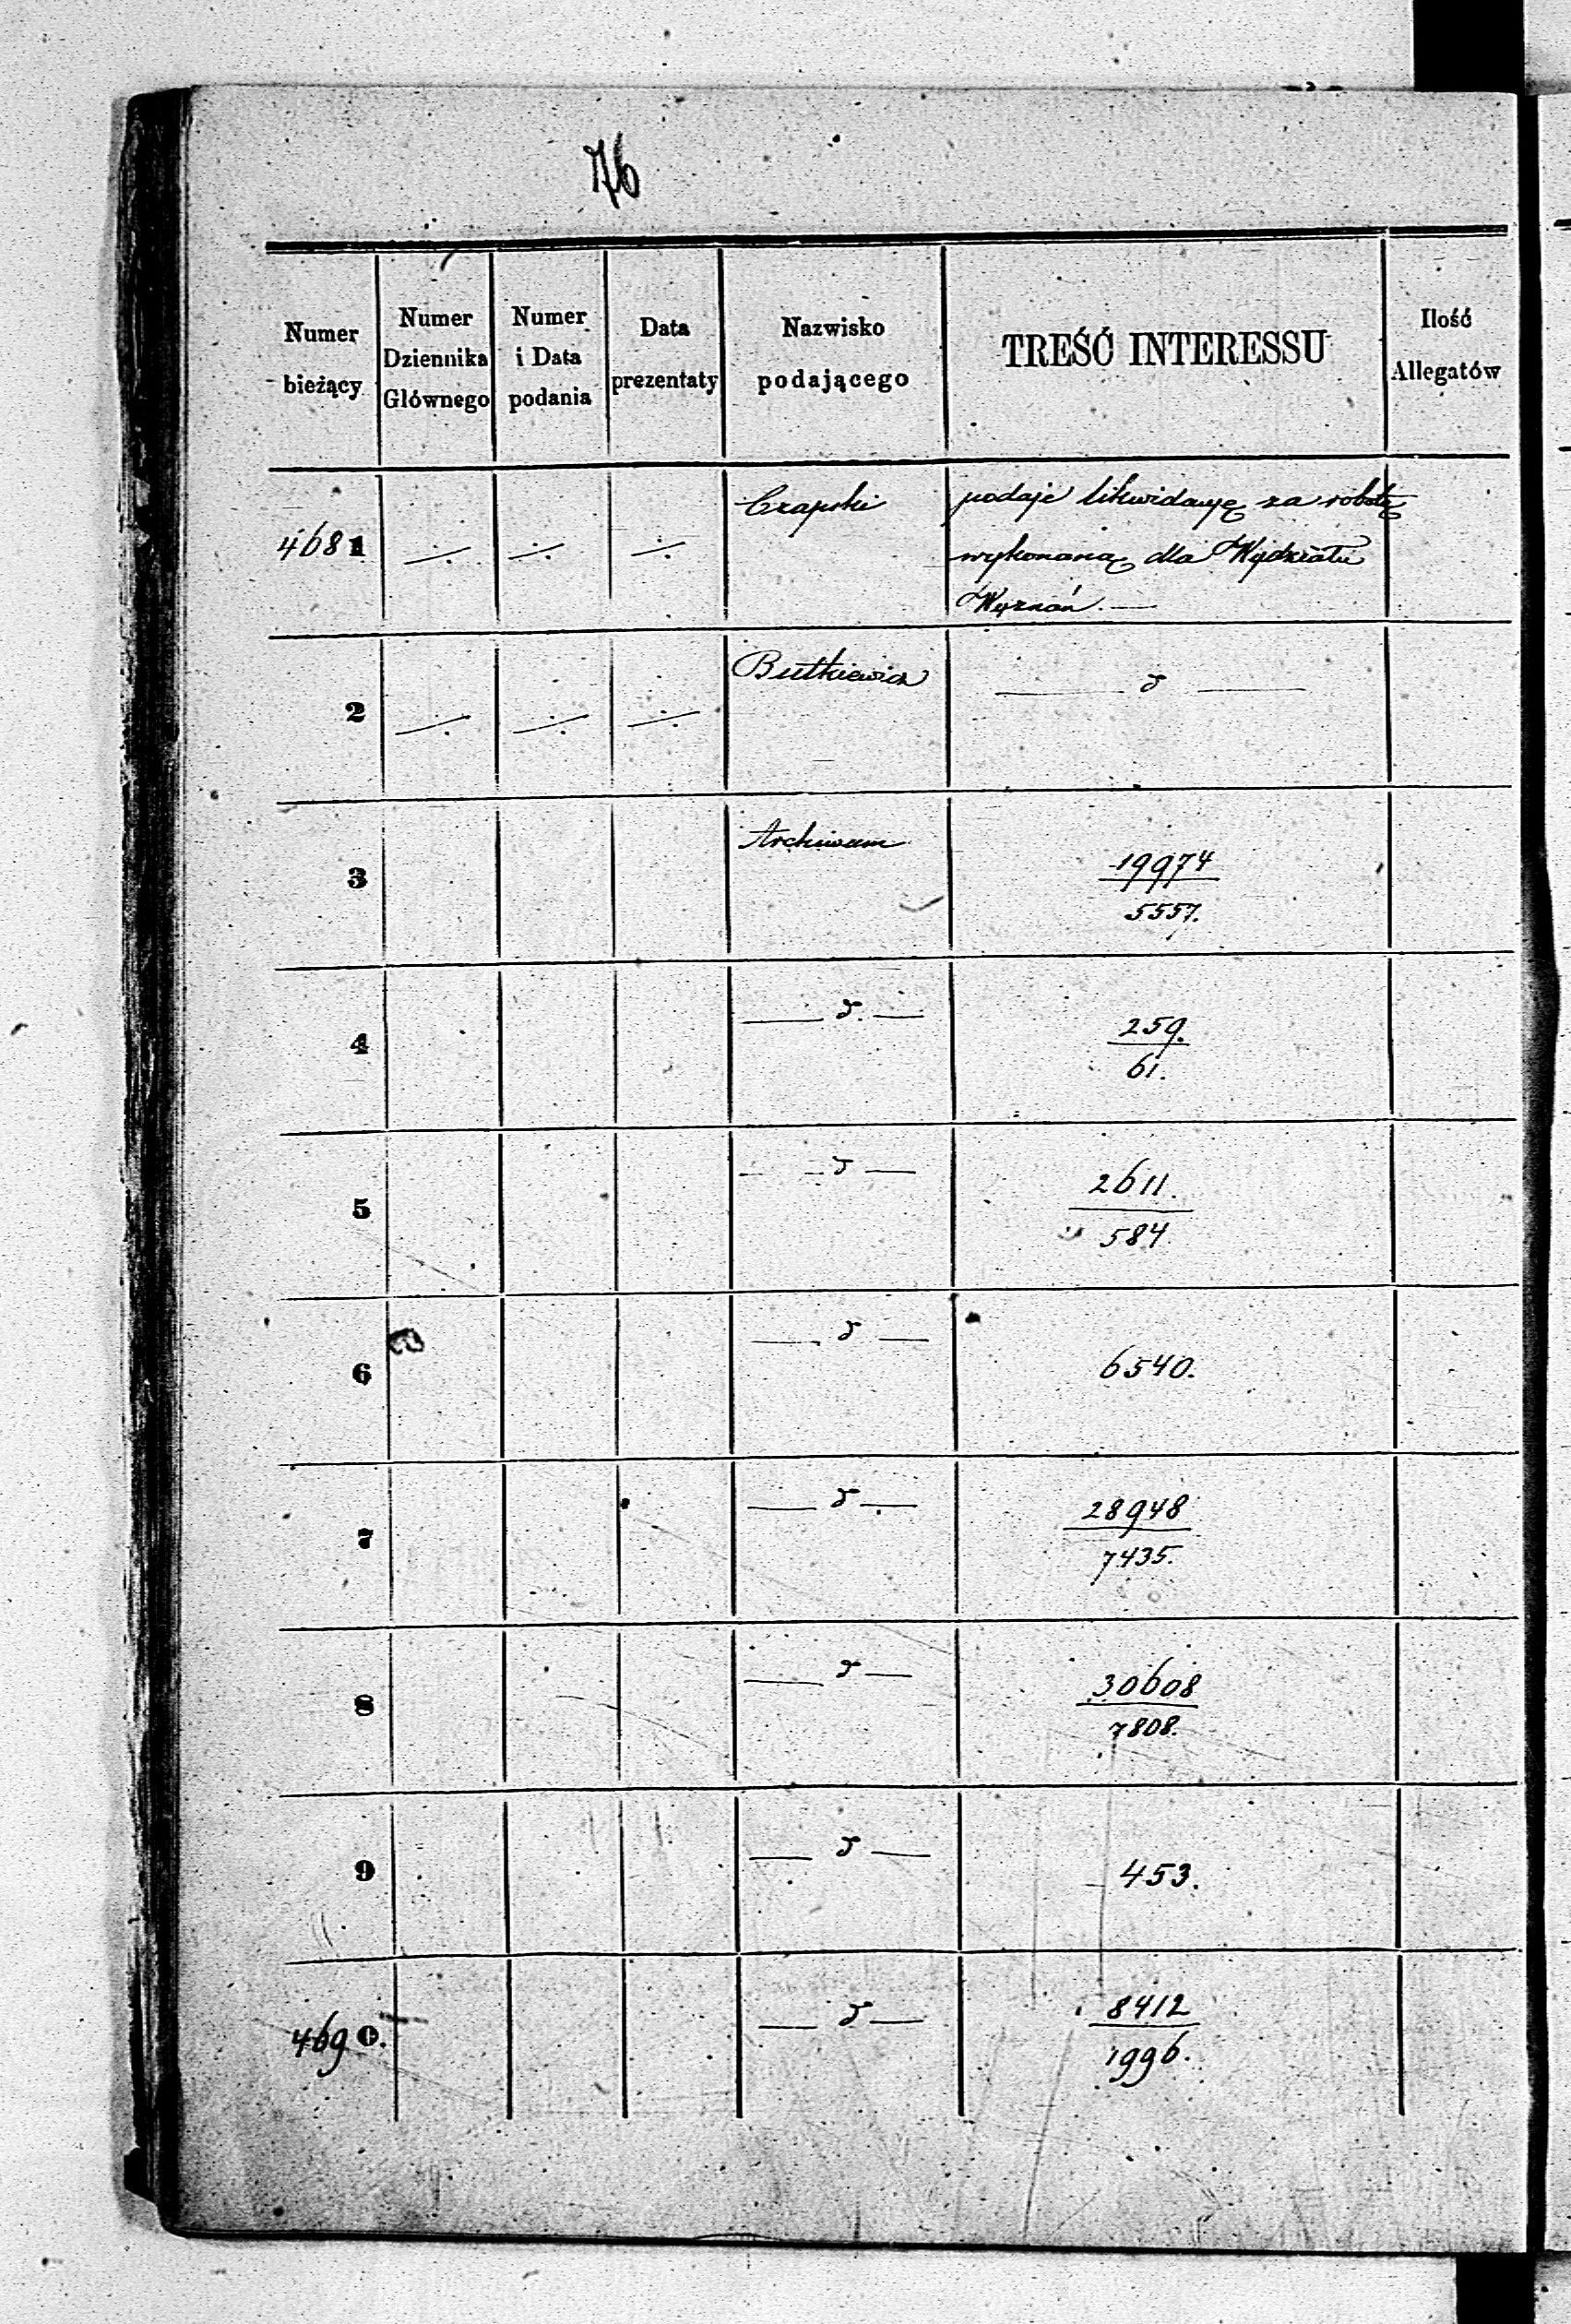 76
Numer bieżący
Numer Dziennika Głównego
Numer i Data podania
Data prezentaty
Nazwisko podającego
TREŚĆ INTERESSU
Ilość Allegatów
4681 ÷ ÷ ÷ Czapski podaje likwidacyę za robotę
wykonaną dla Wydziału
Wyznań. —
2 ÷ ÷ ÷ Butkiewicz — d —
3 Archiwum 19974
5557.
4 — d. — 259.
61.
5 — d — 2611.
584
6 — d — 6540.
7 — d — 28948
7435.
8 — d — 30608
7808.
9 — d — 453.
4690. — d — 8412
1996.